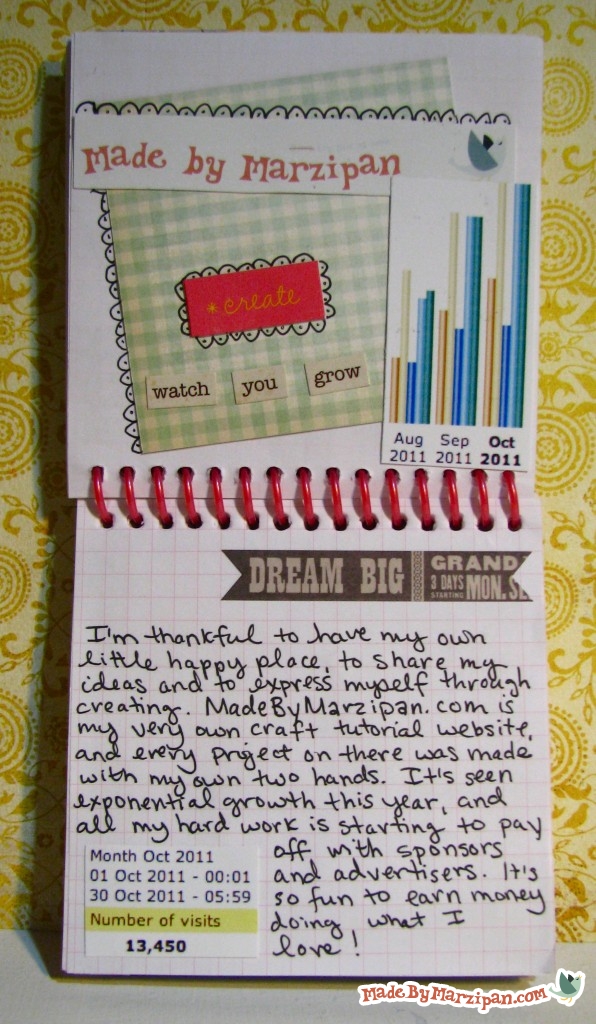 Made by Marzipan
*create
watch you grow
Aug Sep Oct
2011 2011 2011
DREAM BIG
GRAND
3 DAYS
STARTING
MON. S
I'm thankful to have my own
little happy place, to share my
ideas and to express myself through
creating. MadeByMarzipan.com is
my very own craft tutorial website,
and every project on there was made
with my own two hands. It's seen
exponential growth this year, and
all my hard work is starting to pay
off with sponsors
and advertisers. It's
so fun to earn money
doing what I
love!
Month Oct 2011
01 Oct 2011 - 00:01
30 Oct 2011 - 05:59
Number of visits
13,450
MadeByMarzipan.com